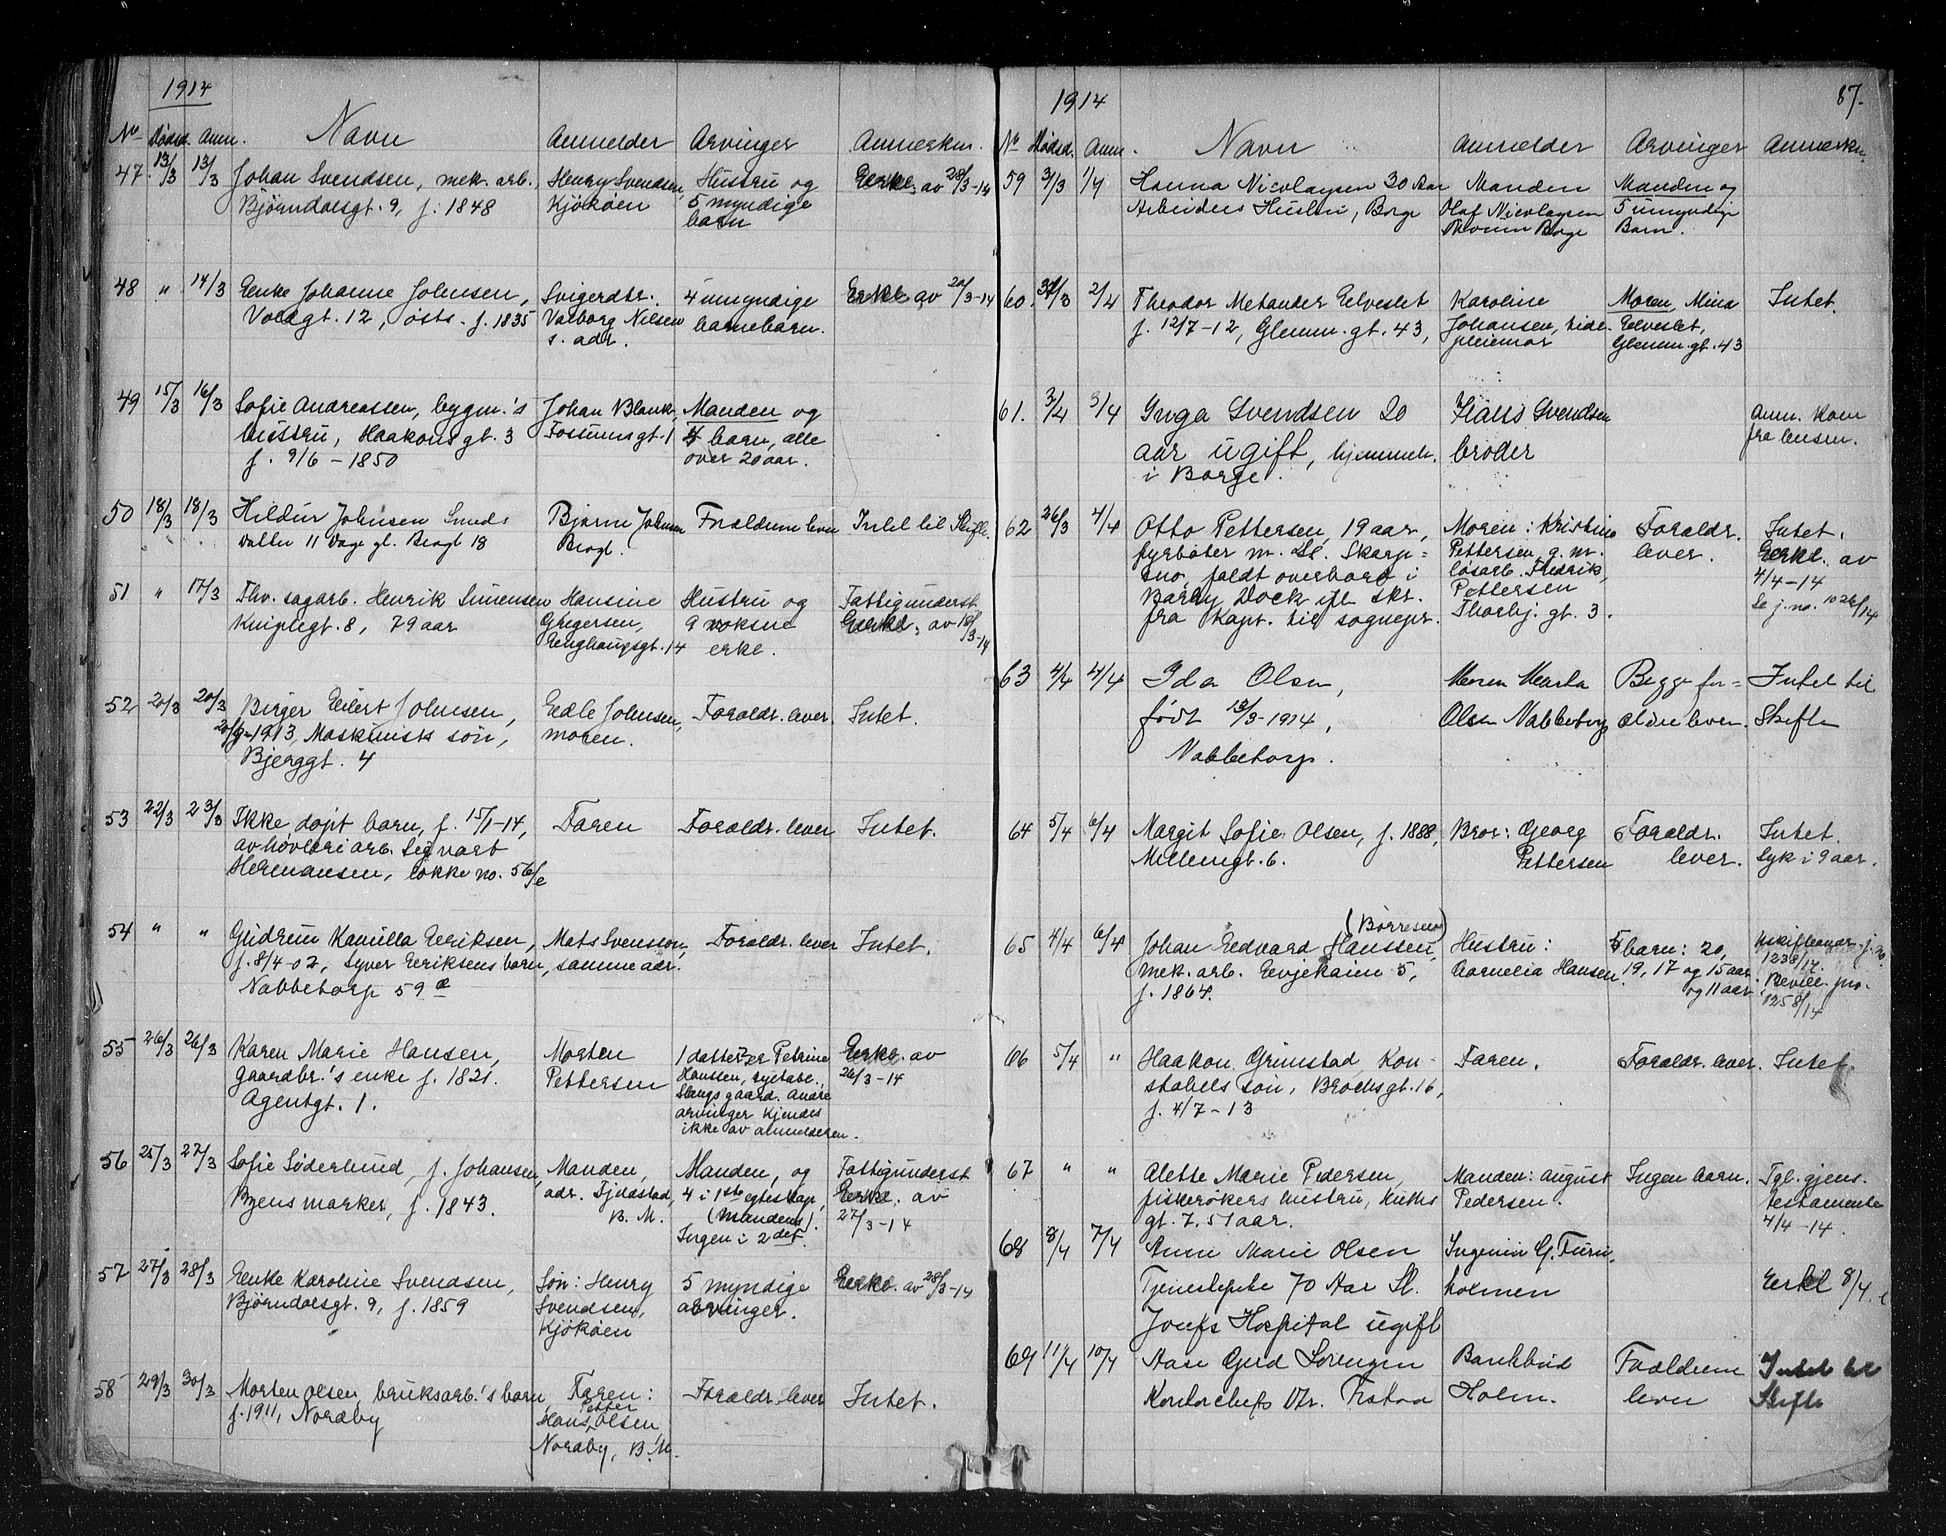 1914
No Dødsd. Anm. Navn Anmelder Arvinger Anmerkn.
47. 13/3 13/3 Johan Svendsen, mek. arb., Henry Svendsen, Hustru og Erkl. av 28/3-14
Bjørndalsgt. 9, f. 1848 Kjøkøen 5 myndige
barn
48 " 14/3 Enke Johanne Johnsen, Svigerdtr. 4 umyndige Erkl. av 20/3-14
Voldgt. 12, østs. f. 1835 Valborg Nilsen barnebarn.
s. adr.
49 15/3 16/3 Sofie Andreassen, bygm.'s Johan Blank, Manden og
hustru, Haakonsgt. 3 Fossumsgt. 1 4 barn, alle
f. 9/6 - 1850 over 20 aar.
50 18/3 18/3 Hildur Johnsen Smeds Bjarne Johnsen Forældrene lever Intet til Skifte.
datter 11 Dage gl. Brogt 18 Brogt.
51 " 17/3 Fhv. sagarb. Henrik Simensen Hansine Hustru og Fattigunderst.
Kniplegt. 8, 79 aar Gregersen, 9 voksne Erkl. av 18/3-14
Enghaugsgt. 14 erkl.
52 20/3 20/3 Birger Eilert Johnsen, Edle Johnsen, Forældr. lever. Intet.
20/9-1913, Maskinists søn, moren.
Bjerggt. 4
53 22/3 23/3 Ikke døpt barn, f. 15/1-14, Faren Forældr. lever Intet.
av høvleriarb. Sigvart
Hermansen, løkke no. 56/e
54 " " Gudrun Kamilla Eriksen, Mats Svensson, Forældr. lever Intet.
f. 8/4-02, Syver Eriksens barn, samme adr.
Nabbetorp 59 a
55 26/3 26/3 Karen Marie Hansen, Morten 1 datter er Petrine Erkl. av
gaardbr.'s enke f. 1821. Pettersen Hanssen, syetabl., 26/3-14
Agentgt. 1. Slengsgaard. Andre
arvinger kjendes
ikke av anmelderen.
56 25/3 27/3 Sofie Søderlund, f. Johansen, Manden, Manden, og Fattigunderst
Byens marker, f. 1843. adr. Fjeldstad, 4 i 1ste egteskap, Erkl. av
B. M. (mandens). 27/3-14
Ingen i 2det.
57 27/3 28/3 Enke Karoline Svendsen, Søn: Henry 5 myndige Erkl. av 28/3-14
Bjørndalsgt. 9, f. 1859 Svendsen, arvinger.
Kjøkøen
58 29/3 30/3 Morten Olsen, bruksarb.'s barn, Faren: Forældr. lever Intet.
f. 1911, Nordby Petter
Hans Olsen
Nordby, B. M.
1914 87.
No Dødsd. Anm. Navn Anmelder Arvinger Anmerkn.
59 3/3 1/4 Hanna Nicolaysen 30 Aar Manden Manden og
Arbeiders Hustru, Borge Olaf Nicolaysen 5 umyndige
Borge Barn.
60. 31/3 2/4 Theodor Metander Elveslet Karoline Moren, Mina Intet.
f. 12/7-12, Glemm. gt. 43, Johansen, Elveslet,
pleiemor Glemm. gt. 43
61. 3/4 3/4 Inga Svendsen 20 Hans Svendsen Anm. kom
aar ugift, hjemmeh. broder fra lensm.
i Borge.
62 26/3 4/4 Otto Pettersen, 19 aar, Moren: Kristine Forældr. Intet.
fyrbøter m. Sl. Skarp= Pettersen, g. m. lever. Erkl. av
sno, faldt overbord i løsarb. Fredrik 4/4-14
Barry Dock ifl. skr. Pettersen Se j. no. 1026/14
fra kapt. til sognepr. Thorbj. gt. 3.
63 4/4 4/4 Ida Olsen, Moren Marta Begge for= Intet til
født 13/3-1914, Olsen Nabbetorp ældre lever. Skifte
Nabbetorp.
64 5/4 6/4 Margit Sofie Olsen, f. 1888, Bror: Georg Forældr. Intet.
Mellemgt. 6. Pettersen lever. Syk i 9 aar.
(Børresen)
65 4/4 6/4 Johan Edvard Hanssen, Hustru: 5 barn: 20, Uskiftebevl. j. no.
mek. arb. Evjekaien 5, Cornelia Hansen. 19, 17 og 15 aar 1238/17.
f. 1864. og 11 aar. Bevill. pro.
1258/14
66 5/4 " Haakon Grimstad, Kon- Faren. Forældr. lever. Intet.
stabels søn, Brochsgt. 16,
f. 4/7-13
67 " " Alette Marie Pedersen, Manden: August Ingen barn. Tgl. gjens.
fiskerøkers hustru, Kuths Pedersen. testamente
gt. 7. 51 aar. 4/4-14.
68 8/4 7/4 Anne Marie Olsen Ingeniør G. Furu-
Tjenestepike 70 Aar St. holmen Erkl 8/4
Josefs Hospital ugift
69 11/4 10/4 Aase Gerd Sørensen Bankbud Forældrene Intet til
Kontorchefs Dtr. Holm. lever Skifte